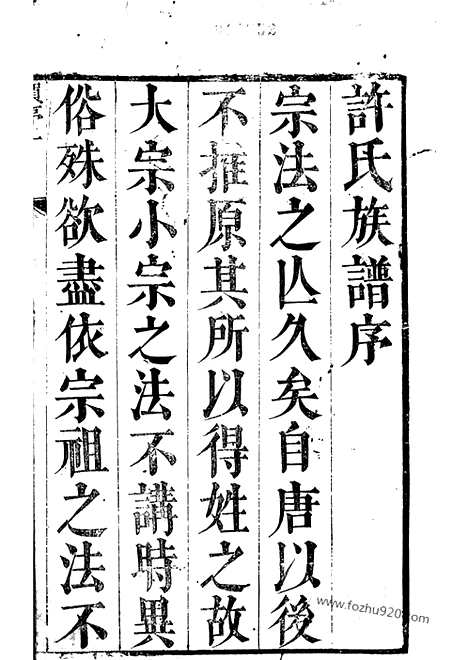 許氏族譜序
宗法之亾久矣自唐以後
不推原其所以得姓之故
大宗小宗之法不講時異
俗殊欲盡依宗祖之法不
www.fozhu920.com